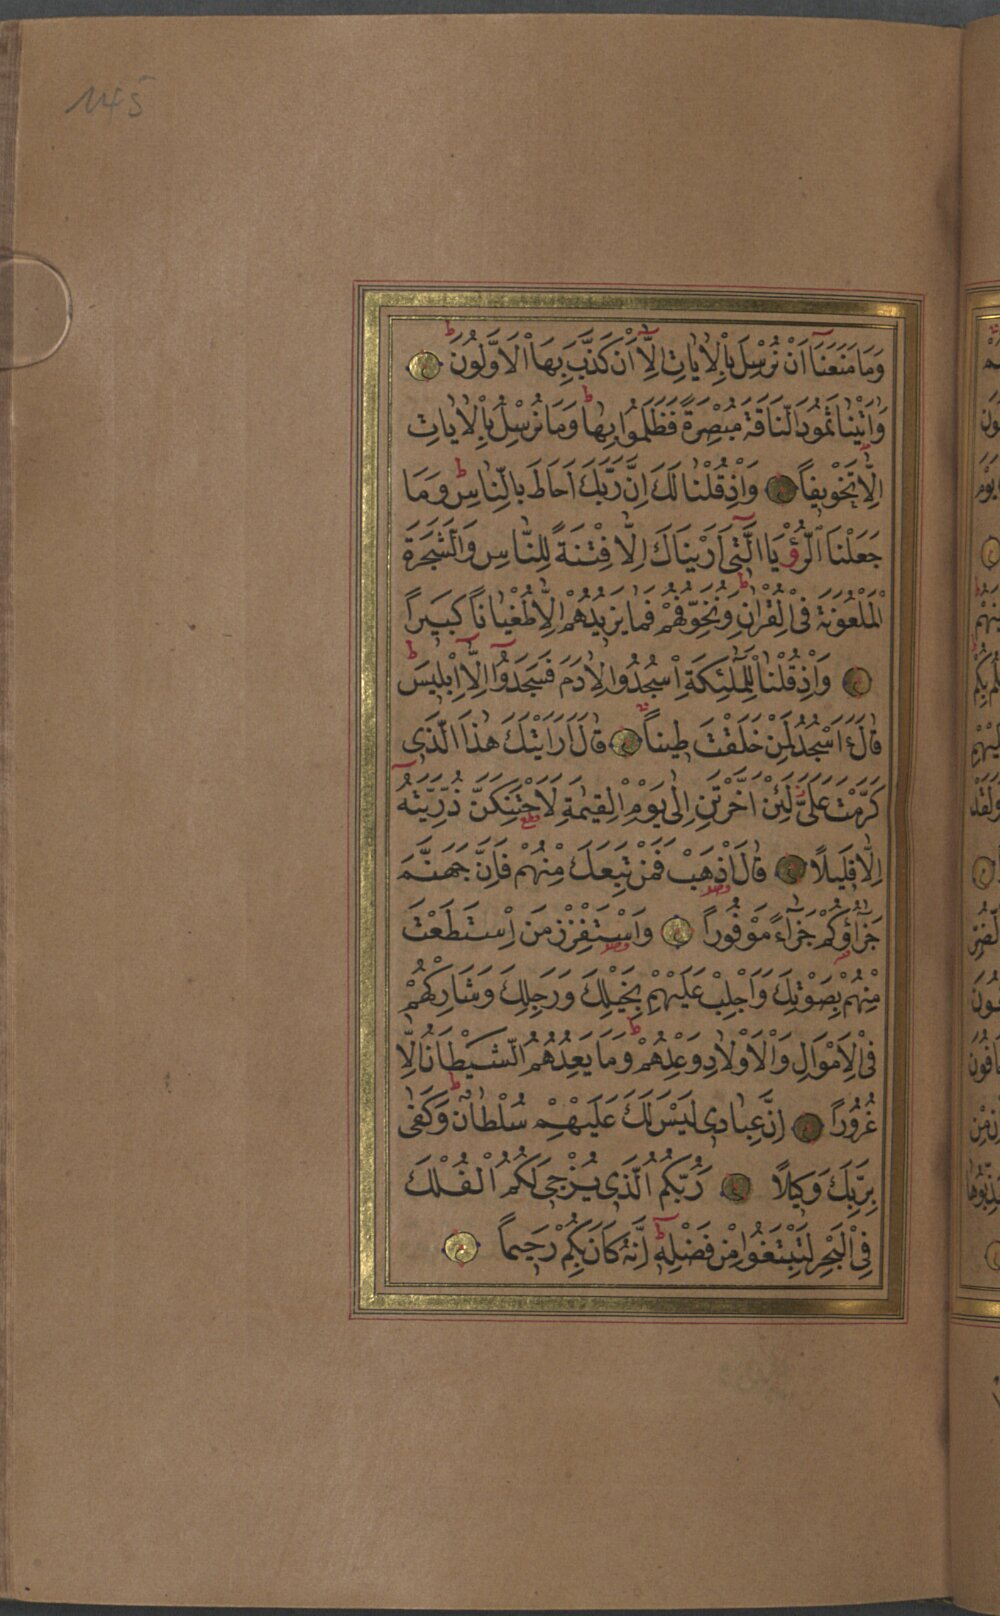 145
وَمَا مَنَعَنَا اَنْ نُرْسِلَ بِالْاٰيَاتِ اِلَّا اَنْ كَذَّبَ بِهَا الْاَوَّلُونَ
وَاٰتَيْنَا ثَمُودَ النَّاقَةَ مُبْصِرَةً فَظَلَمُوا بِهَا وَمَا نُرْسِلُ بِالْاٰيَاتِ
اِلَّا تَخْوِيفًا وَاِذْ قُلْنَا لَكَ اِنَّ رَبَّكَ اَحَاطَ بِالنَّاسِ وَمَا
جَعَلْنَا الرُّؤْيَا الَّتِى اَرَيْنَاكَ اِلَّا فِتْنَةً لِلنَّاسِ وَالشَّجَرَةَ
الْمَلْعُونَةَ فِى الْقُرْاٰنِ وَنُخَوِّفُهُمْ فَمَا يَزِيدُهُمْ اِلَّا طُغْيَانًا كَبِيرًا
وَاِذْ قُلْنَا لِلْمَلٰٓئِكَةِ اسْجُدُوا لِاٰدَمَ فَسَجَدُٓوا اِلَّٓا اِبْلِيسَ
قَالَ ءَاَسْجُدُ لِمَنْ خَلَقْتَ طِينًا قَالَ اَرَاَيْتَكَ هٰذَا الَّذِى
كَرَّمْتَ عَلَىَّ لَئِنْ اَخَّرْتَنِ اِلٰى يَوْمِ الْقِيٰمَةِ لَاَحْتَنِكَنَّ ذُرِّيَّتَهُ
اِلَّا قَلِيلًا قَالَ اذْهَبْ فَمَنْ تَبِعَكَ مِنْهُمْ فَاِنَّ جَهَنَّمَ
جَزَٓاؤُكُمْ جَزَٓاءً مَوْفُورًا وَاسْتَفْزِزْ مَنِ اسْتَطَعْتَ
مِنْهُمْ بِصَوْتِكَ وَاَجْلِبْ عَلَيْهِمْ بِخَيْلِكَ وَرَجِلِكَ وَشَارِكْهُمْ
فِى الْاَمْوَالِ وَالْاَوْلَادِ وَعِدْهُمْ وَمَا يَعِدُهُمُ الشَّيْطَانُ اِلَّا
غُرُورًا اِنَّ عِبَادِى لَيْسَ لَكَ عَلَيْهِمْ سُلْطَانٌ وَكَفٰى
بِرَبِّكَ وَكِيلًا رَبُّكُمُ الَّذِى يُزْجِى لَكُمُ الْفُلْكَ
فِى الْبَحْرِ لِتَبْتَغُوا مِنْ فَضْلِهٖ اِنَّهُ كَانَ بِكُمْ رَحِيمًا